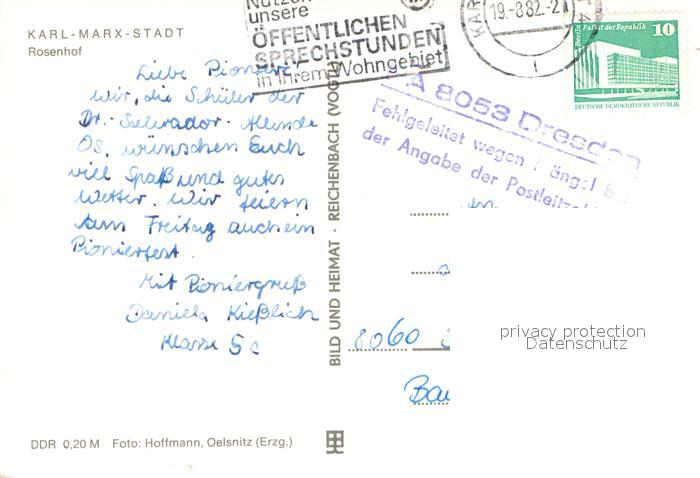 KARL-MARX-STADT
Rosenhof
Liebe Pioniere!
Wir, die Schüler der
Dr.-Salvador-Allende
OS, wünschen Euch
viel Spaß und gutes
Wetter. Wir feiern
am Freitag auch ein
Pionierfest.
Mit Pioniergruß
Daniela Kießlich
Klasse 5c
DDR 0,20 M Foto: Hoffmann, Oelsnitz (Erzg.)
BILD UND HEIMAT · REICHENBACH (VOGTL
unsere
ÖFFENTLICHEN
SPRECHSTUNDEN
in Ihrem Wohngebiet
KAR
19.-8.82.-2
Berlin Palast der Republik
10
DEUTSCHE DEMOKRATISCHE REPUBLIK
A 8053 Dresden
Fehlgeleitet wegen
der Angabe der
8060
privacy protection
Datenschutz